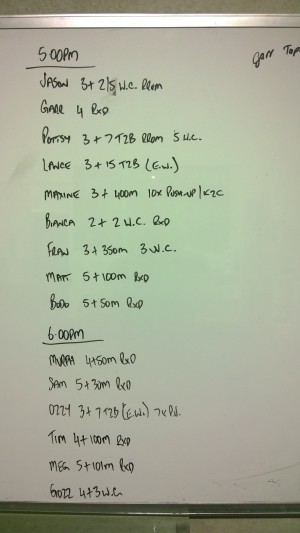 5:00PM
JASON 3+2/5 W.C. RROM
GARR 4 RXD
POTTSY 3+7 T2B RROM 5 W.C.
LANCE 3+15 T2B (E.W.)
MAXINE 3+400M 10X PUSH-UP/K2C
BIANCA 2+2 W.C. RXD
FRAN 3+350M 3 W.C.
MATT 5+100M RXD
BODO 5+50M RXD
6:00PM
MURPH 4+50M RXD
SAM 5+30M RXD
OZZY 3+7 T2B (E.W.) 7X
TIM 4+100M RXD
MEG 5+101M RXD
GOZZ 4+3 W.C.